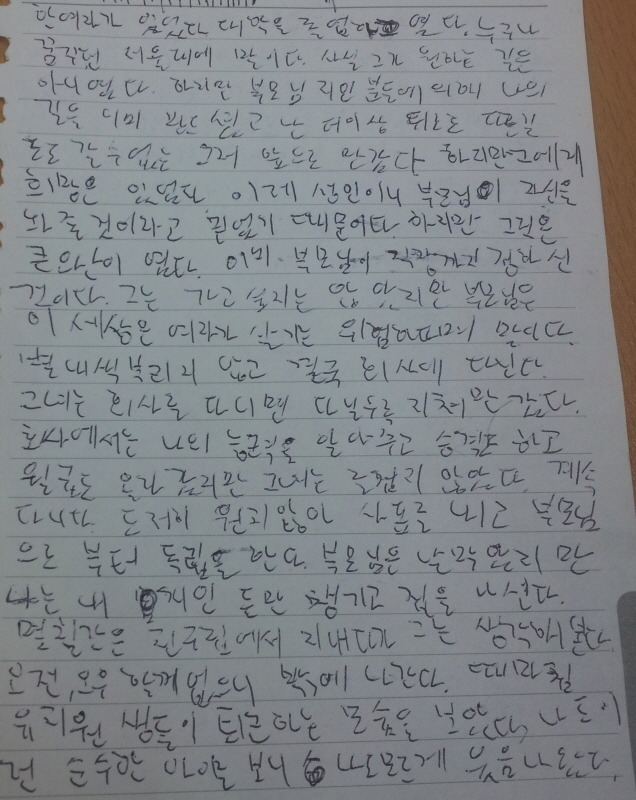 한여라가 있었다 대학을 졸업하 였다. 누구나
꿈꾸던 서울대에 말이다. 사실 그가 원하는 길은
아니였다. 하지만 부모님 지인 분들에 의해 나의
길을 이미 만드셨고 난 더이상 뒤로도 다른길
로도 갈수없는 그저 앞으로만 갔다 하지만 그에게
희망은 있었다 이제 성인이니 부모님이 자신을
놔 줄 것이라고 믿었기 때문이다 하지만 그것은
큰 오산이 였다. 이미 부모님이 직장까지 정하신
것이다. 그는 가고 싶지는 않았지만 부모님은
이 세상은 여자가 살기는 위험하다며 말이다.
별 내색 부리지 않고 결국 회사에 다닌다.
그녀는 회사를 다니면 다닐수록 지쳐만 갔다.
회사에서는 나의 능력을 알아주고 승격도 하고
월급도 올라 갔지만 그녀는 즐겁지 않았다. 계속
다니다. 도저히 원치않아 사표를 내고 부모님
으로 부터 독립을 한다. 부모님은 날 막았지만
나는 내 개인 돈만 챙기고 집을 나선다.
몇칠간은 친구집에서 지내다가 그는 생각해본다.
오전, 오후 할게 없으니 밖에 나간다. 때마침
유치원 생들이 퇴근하는 모습을 보았다, 나도 이
런 순수한 아이를 보니 나도모르게 웃음나왔다.